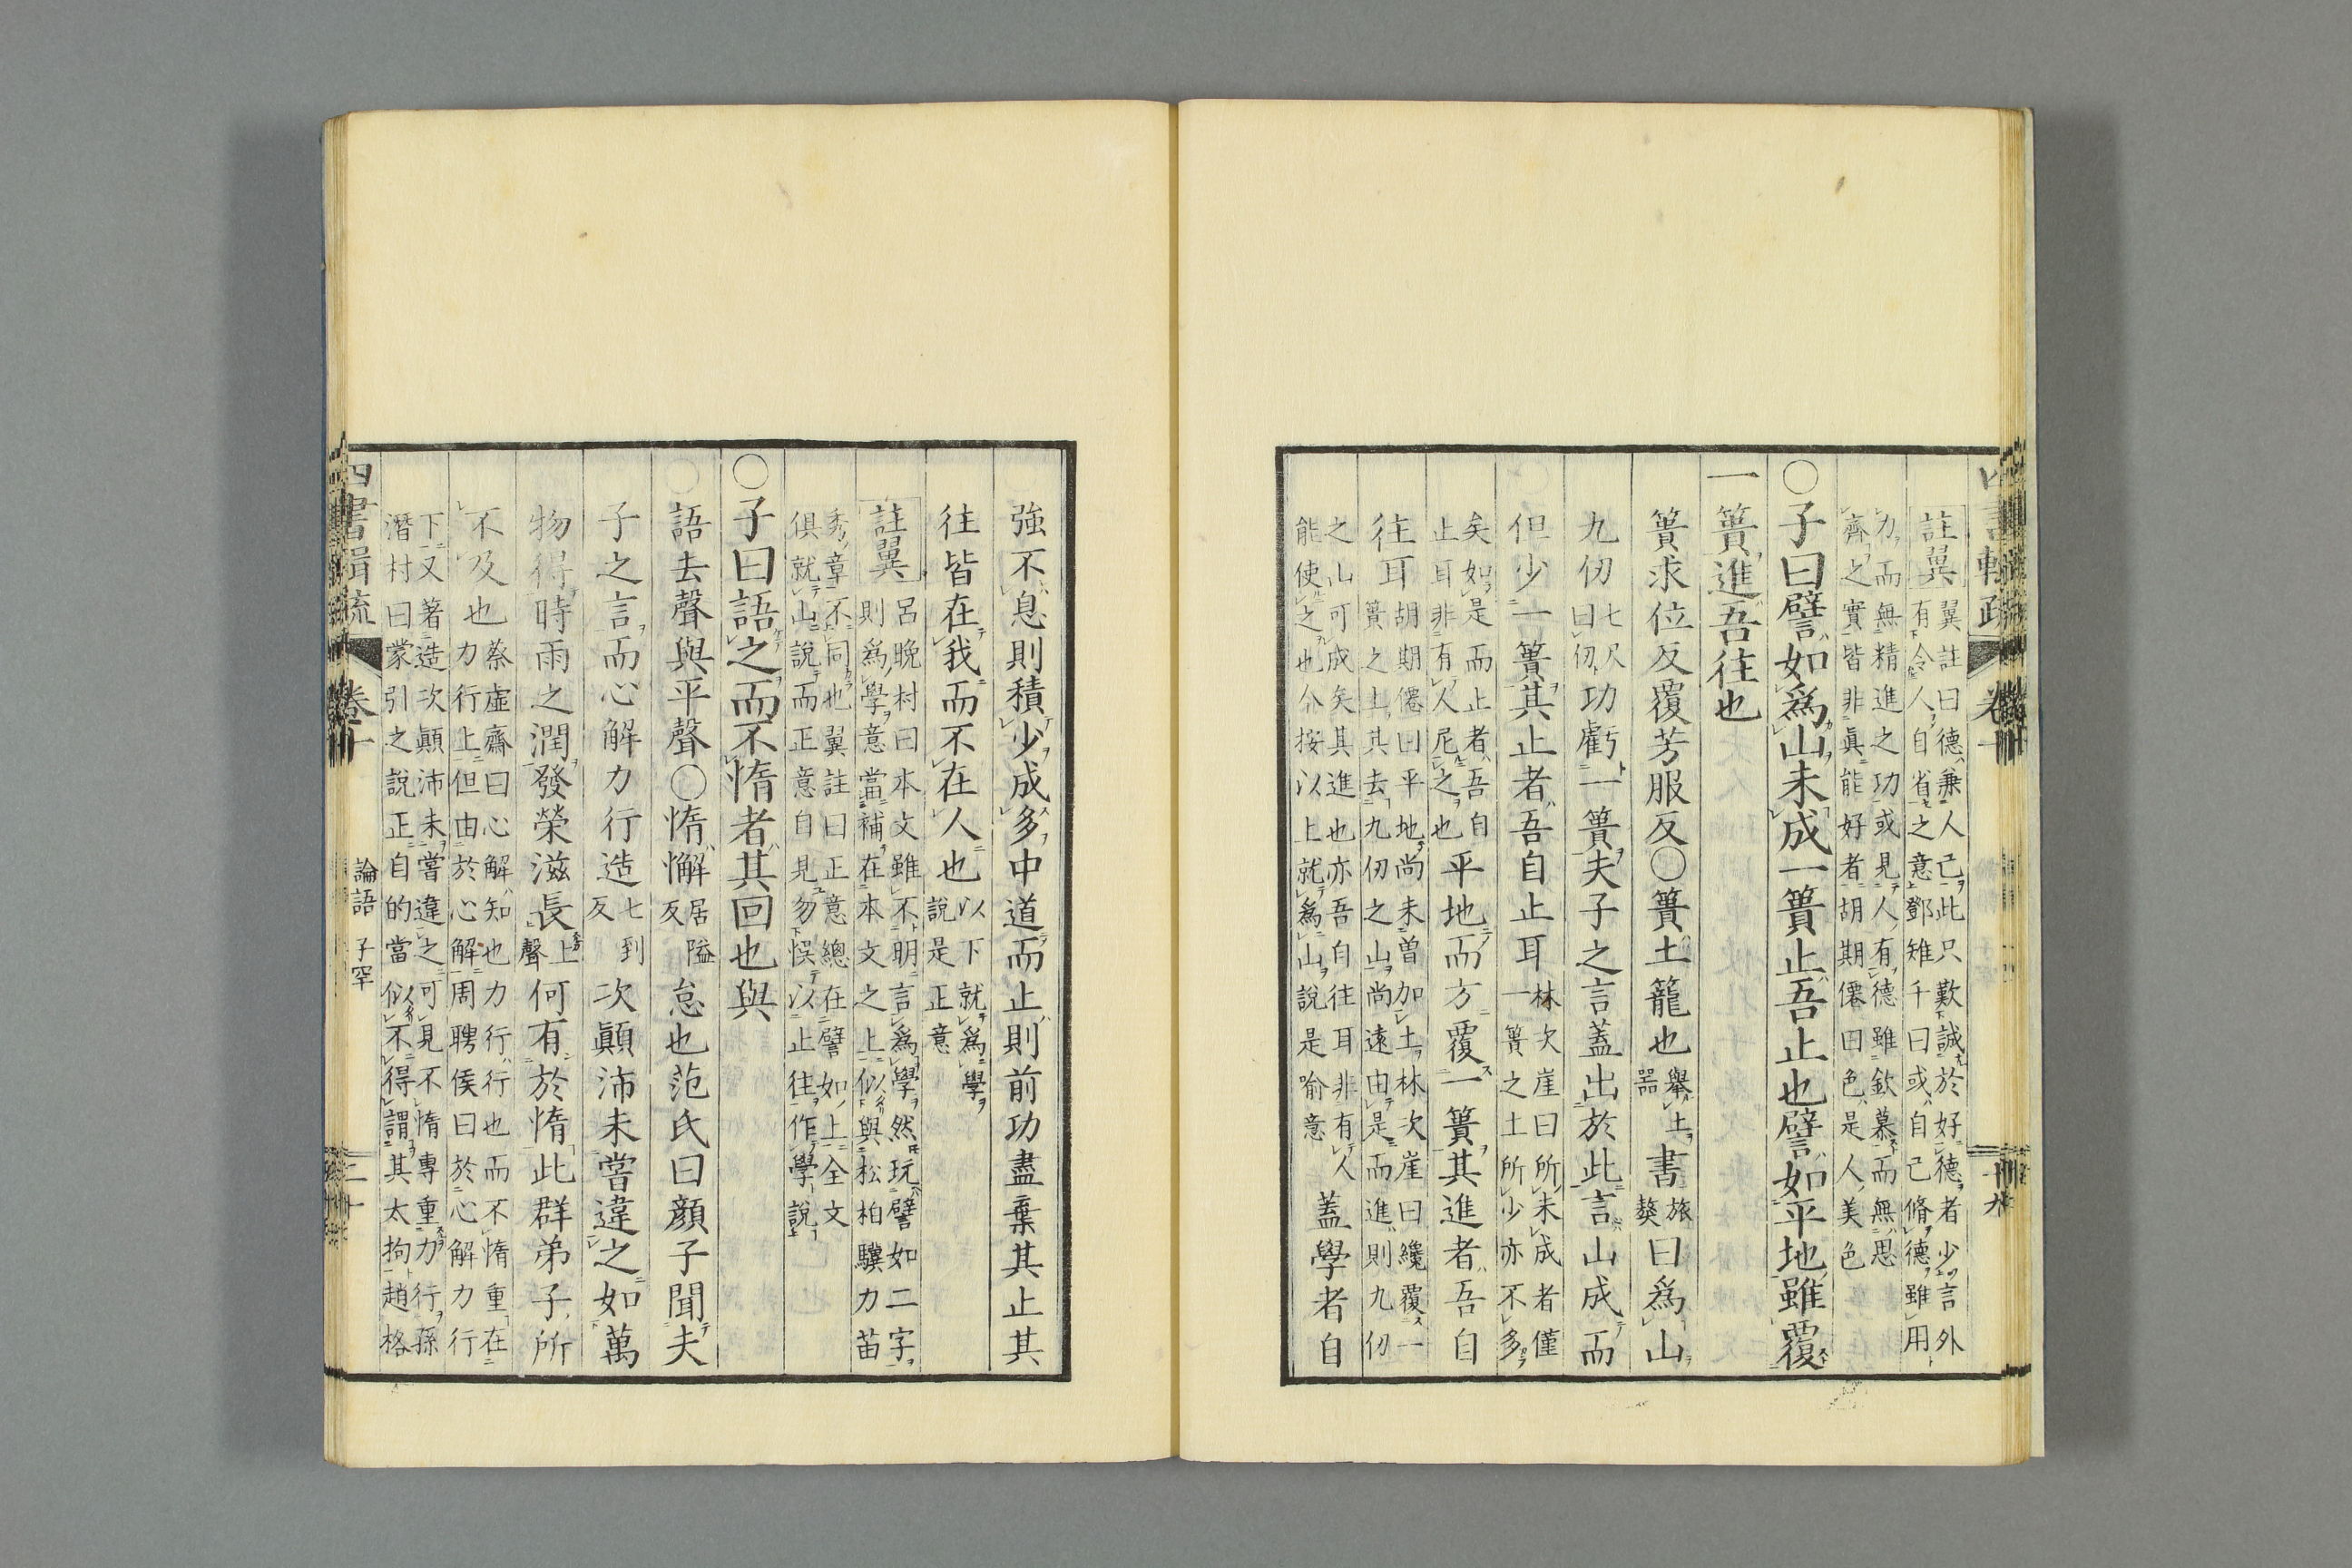 四書輯疏 卷十 十九
註翼
翼註曰德兼人己此只歎誠於好德者少言外
有令人自省之意鄧雉千曰或自己脩德雖用
力而無精進之功或見人有德雖欽慕而無思
齊之實皆非眞能好者胡期僊曰色是人美色
○子曰譬如爲山未成一簣止吾止也譬如平地雖覆
一簣進吾往也
簣求位反覆芳服反○簣土籠也
舉土
器
書
旅
獒
曰爲山
九仞
七尺
曰仞
功虧一簣夫子之言蓋出於此言山成而
但少一簣其止者吾自止耳
林次崖曰所未成者僅
一簣之土所少亦不多
矣如是而止者吾自
止耳非有人尼之也
平地而方覆一簣其進者吾自
往耳
胡期僊曰平地尚未曾加土林次崖曰纔覆一
簣之土其去九仞之山尚遠由是而進則九仞
之山可成矣其進也亦吾自往耳非有人
能使之也仌按以上就爲山說是喻意
蓋學者自
強不息則積少成多中道而止則前功盡棄其止其
往皆在我而不在人也
以下就爲學
說是正意
註翼
呂晚村曰本文雖不明言爲學然玩譬如二字
則爲學意當補在本文之上似與松柏驥力苗
秀章不同也翼註曰正意總在譬如上全文
俱就山說而正意自見勿悞以止往作學說
○子曰語之而不惰者其回也與
語去聲與平聲○惰懈
居隘
反
怠也范氏曰顔子聞夫
子之言而心解力行造
七到
反
次顚沛未嘗違之如萬
物得時雨之潤發榮滋長
上
聲
何有於惰此群弟子所
不及也
蔡虛齋曰心解知也力行行也而不惰重在
力行上但由於心解周聘侯曰於心解力行
下又著造次顚沛未嘗違之可見不惰專重力行孫
潛村曰蒙引之說正自的當似不得謂其太拘趙格
四書輯疏 卷十 論語 子罕 二十